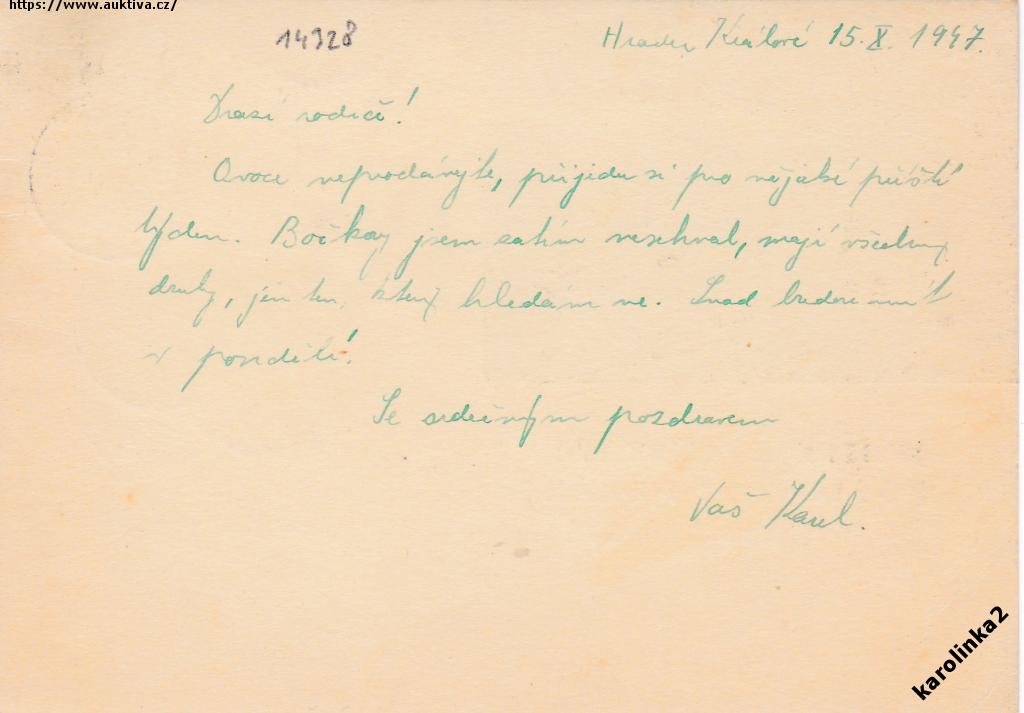 https://www.auktiva.cz/
14328
Hradec Králové 15.X. 1947.
Drazí rodiče!
Ovoce neprodávejte, přijedu si pro nějaké příští
týden. Bočkay jsem zatím nesehnal, mají všechny
druhy, jen ten, který hledám ne. Snad budou mít
v pondělí!
Se srdečným pozdravem
Váš Karel.
karolinka2